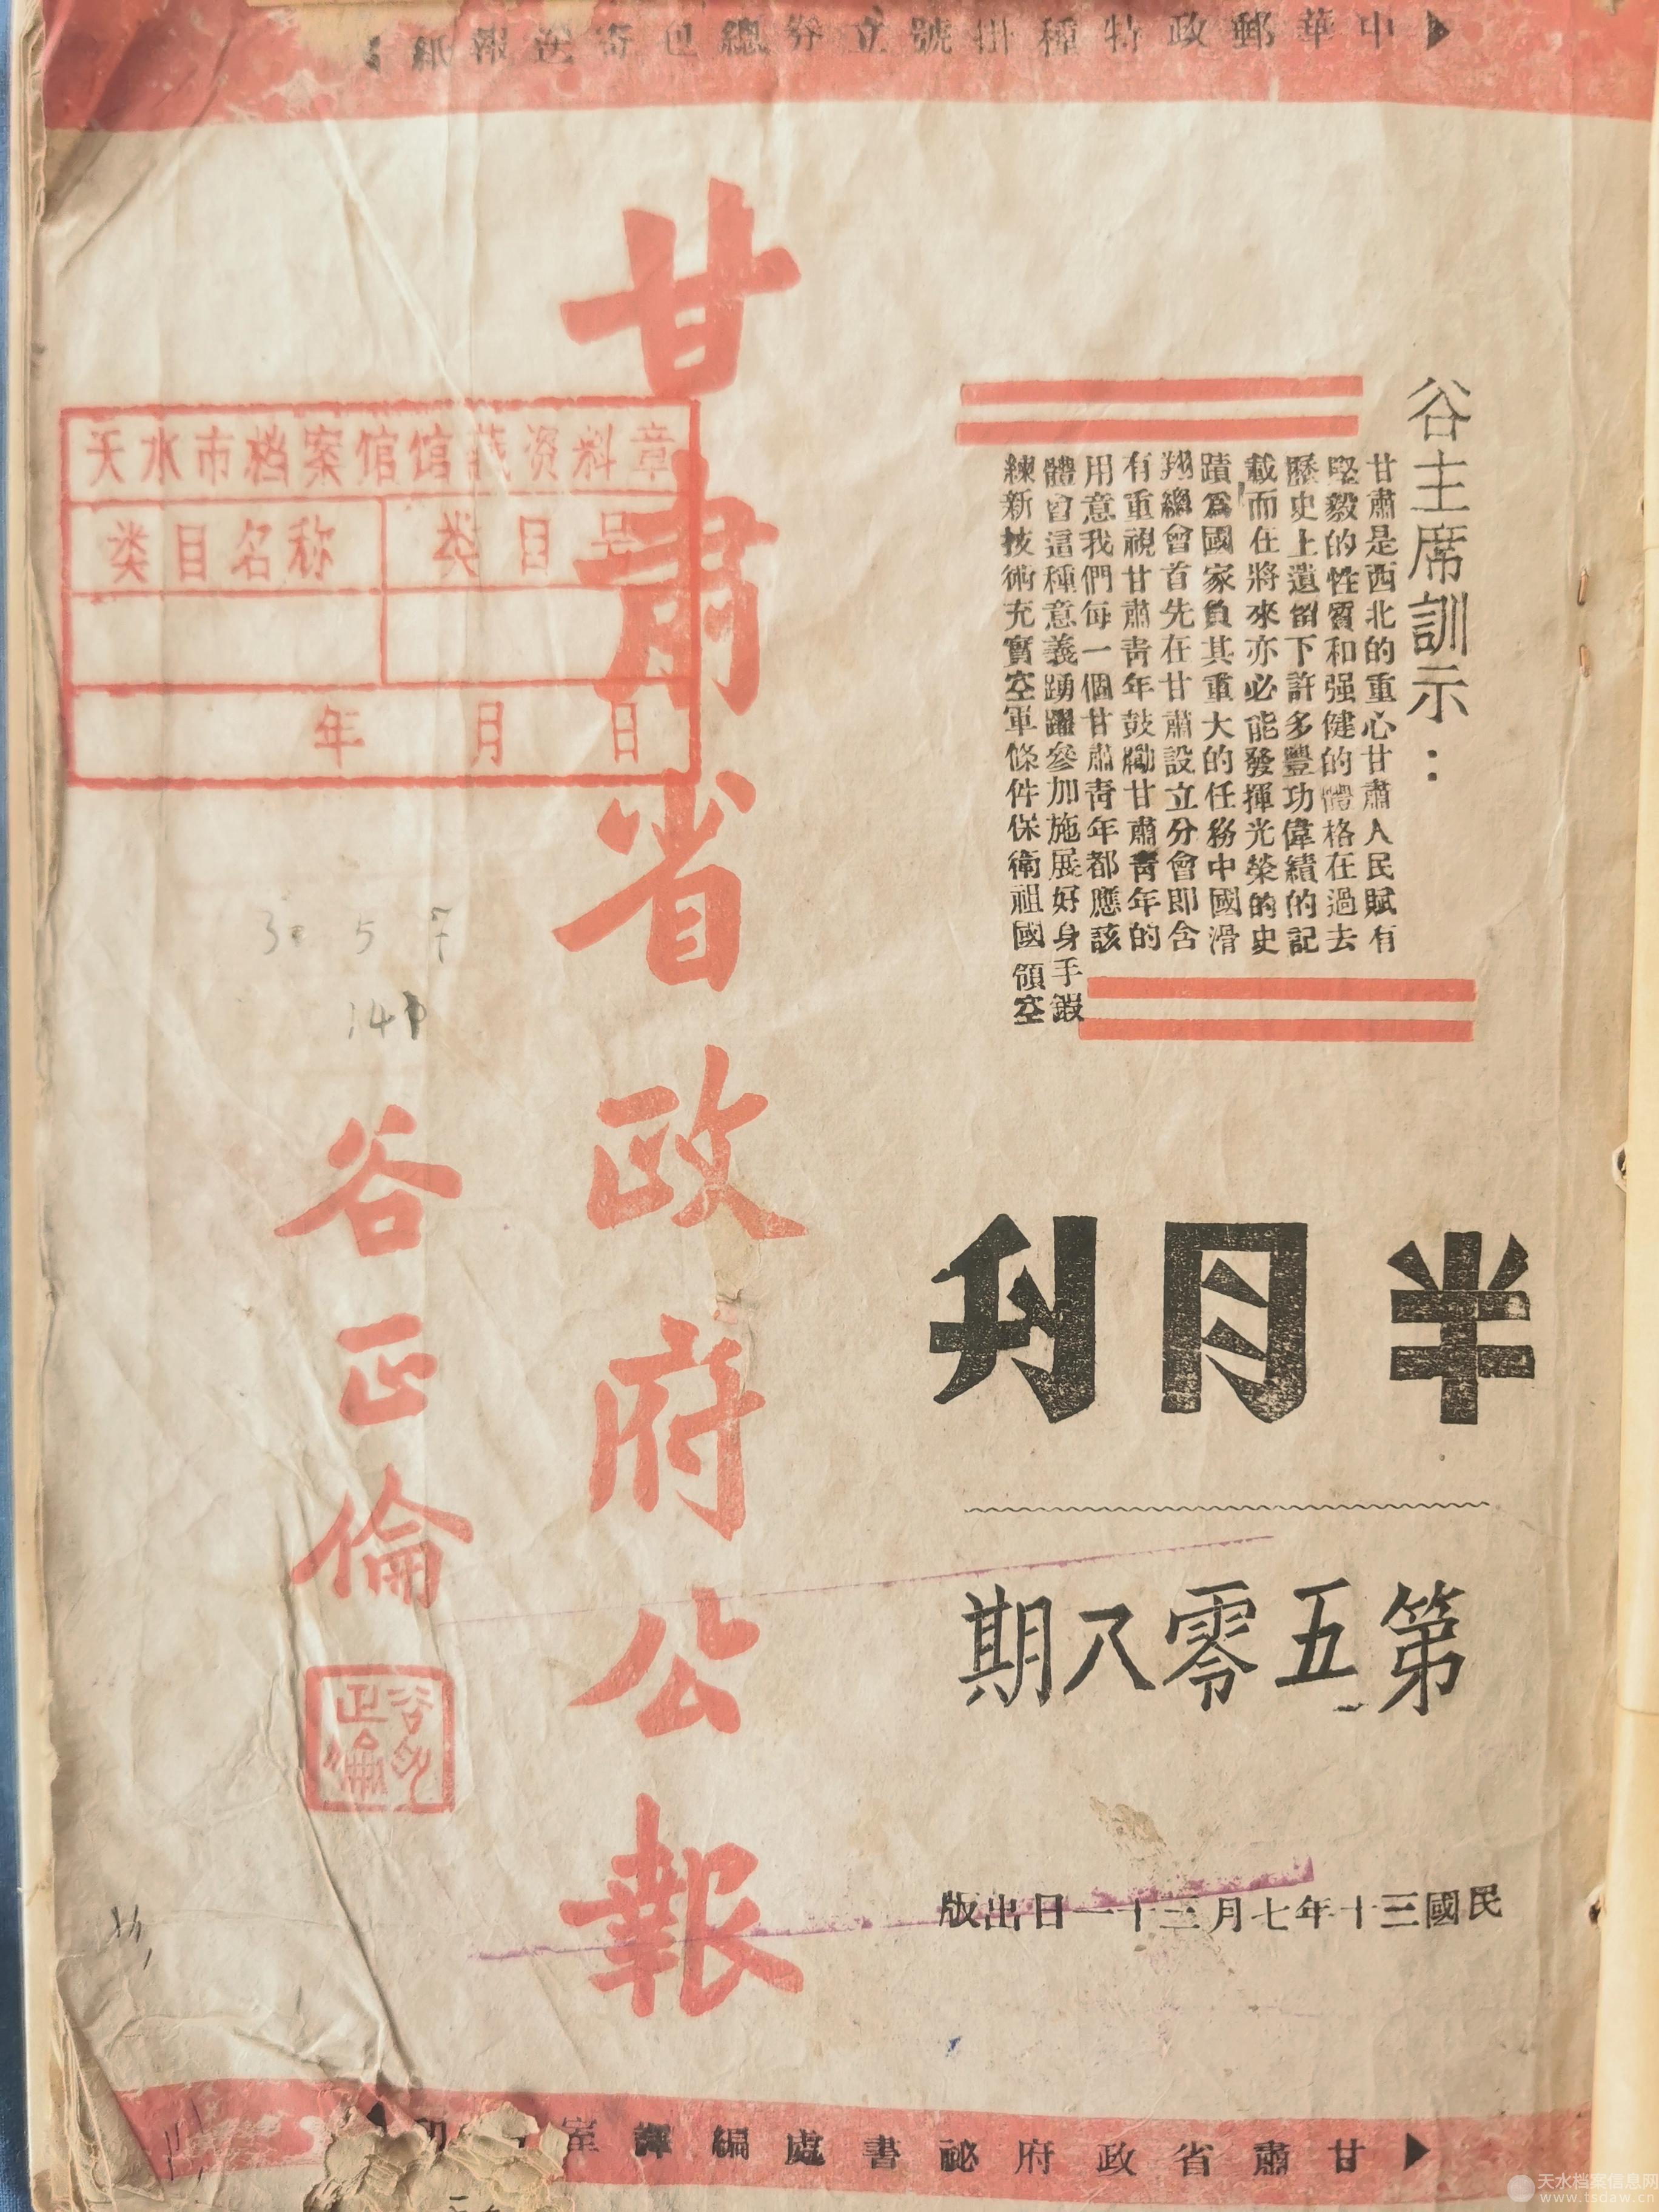 中華郵政特種掛號立券總包寄送報紙
谷主席訓示：
甘肅是西北的重心甘肅人民賦有
堅毅的性質和强健的體格在過去
歷史上遺留下許多豐功偉績的記
載而在將來亦必能發揮光榮的史
蹟爲國家負其重大的任務中國滑
翔總會首先在甘肅設立分會即含
有重視甘肅青年鼓勵甘肅青年的
用意我們每一個甘肅青年都應該
體會這種意義踴躍參加施展好身手鍛
練新技術充實空軍條件保衛祖國領空
半月刊
第五零八期
民國三十年七月三十一日出版
甘肅省政府公報
谷正倫
谷正倫印
天水市档案馆馆藏资料章
类目名称
类目号
年 月 日
30 5
甘肅省政府祕書處編譯室印
天水档案信息网
www.tsdaw.cn